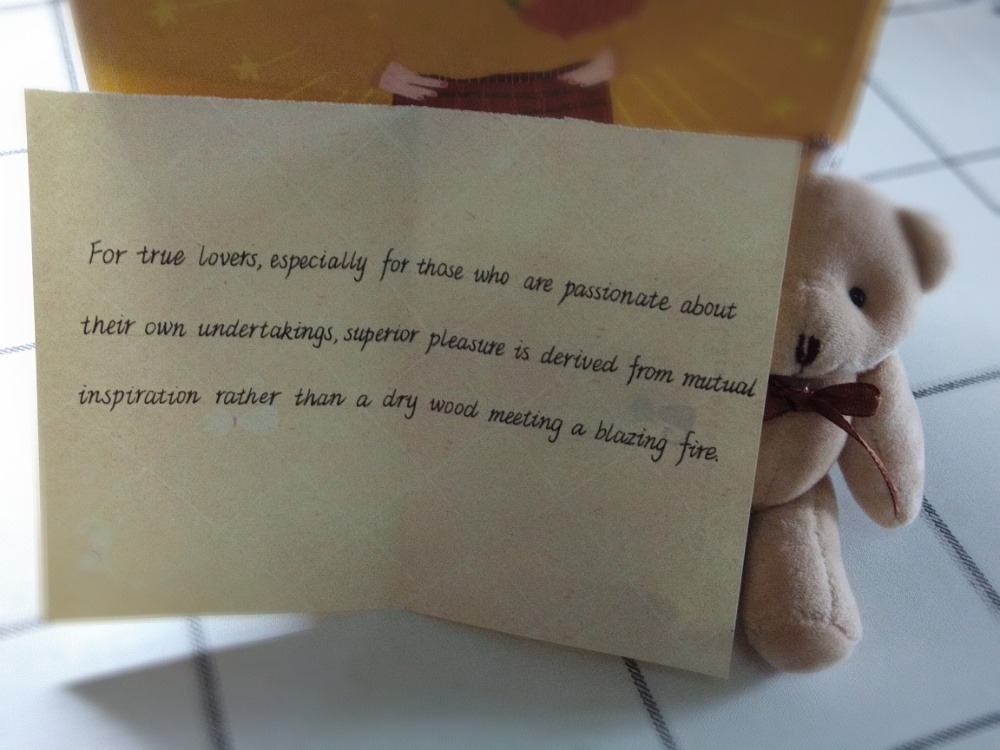 For true lovers, especially for those who are passionate about
their own undertakings, superior pleasure is derived from mutual
inspiration rather than a dry wood meeting a blazing fire.